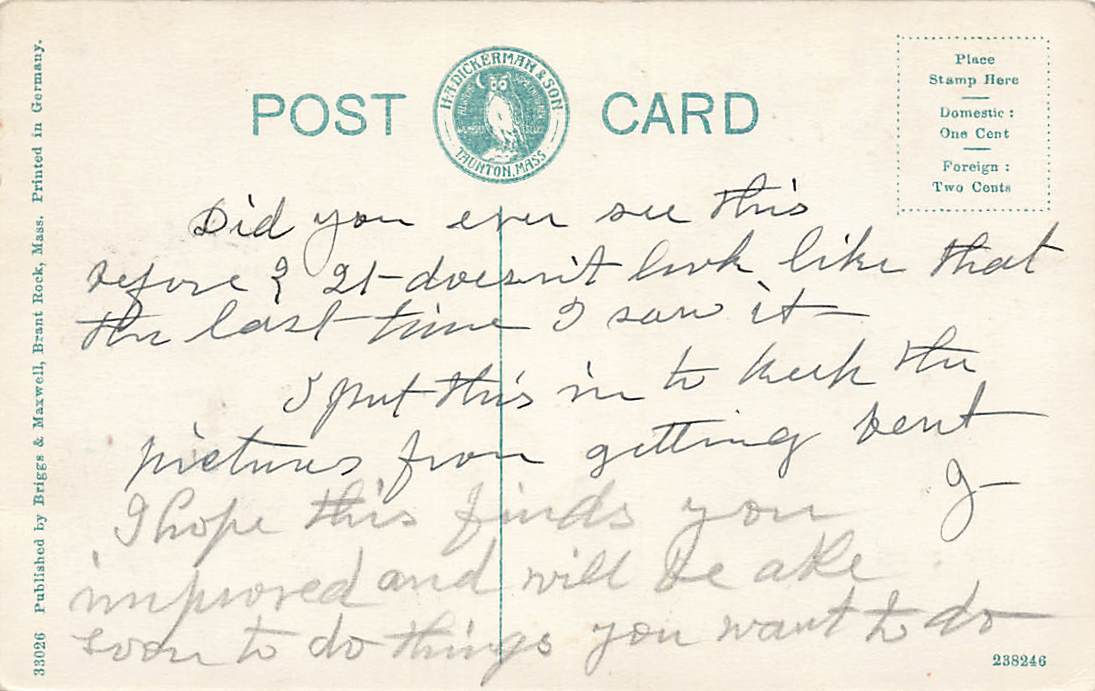 POST CARD
H.A. DICKERMAN & SON
TAUNTON, MASS.
Place
Stamp Here
Domestic:
One Cent
Foreign:
Two Cents
33026 Published by Briggs & Maxwell, Brant Rock, Mass. Printed in Germany.
Did you ever see this
before? It doesn't look like that
the last time I saw it
I put this in to keep the
pictures from getting bent
J
I hope this finds you
improved and will be able
soon to do things you want to do
238246